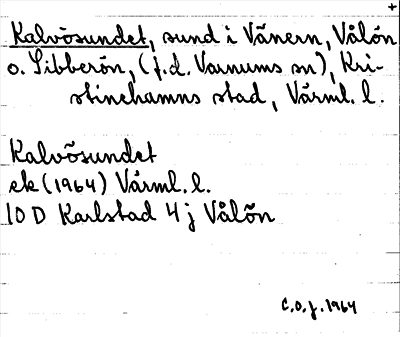 +
Kalvösundet, sund i Vänern, Vålön
o. Sibberön, (f.d. Varnums sn), Kri-
stinehamns stad, Värml. l.
Kalvösundet
ek (1964) Värml. l.
10 D Karlstad 4 j Vålön
C.O.J. 1964